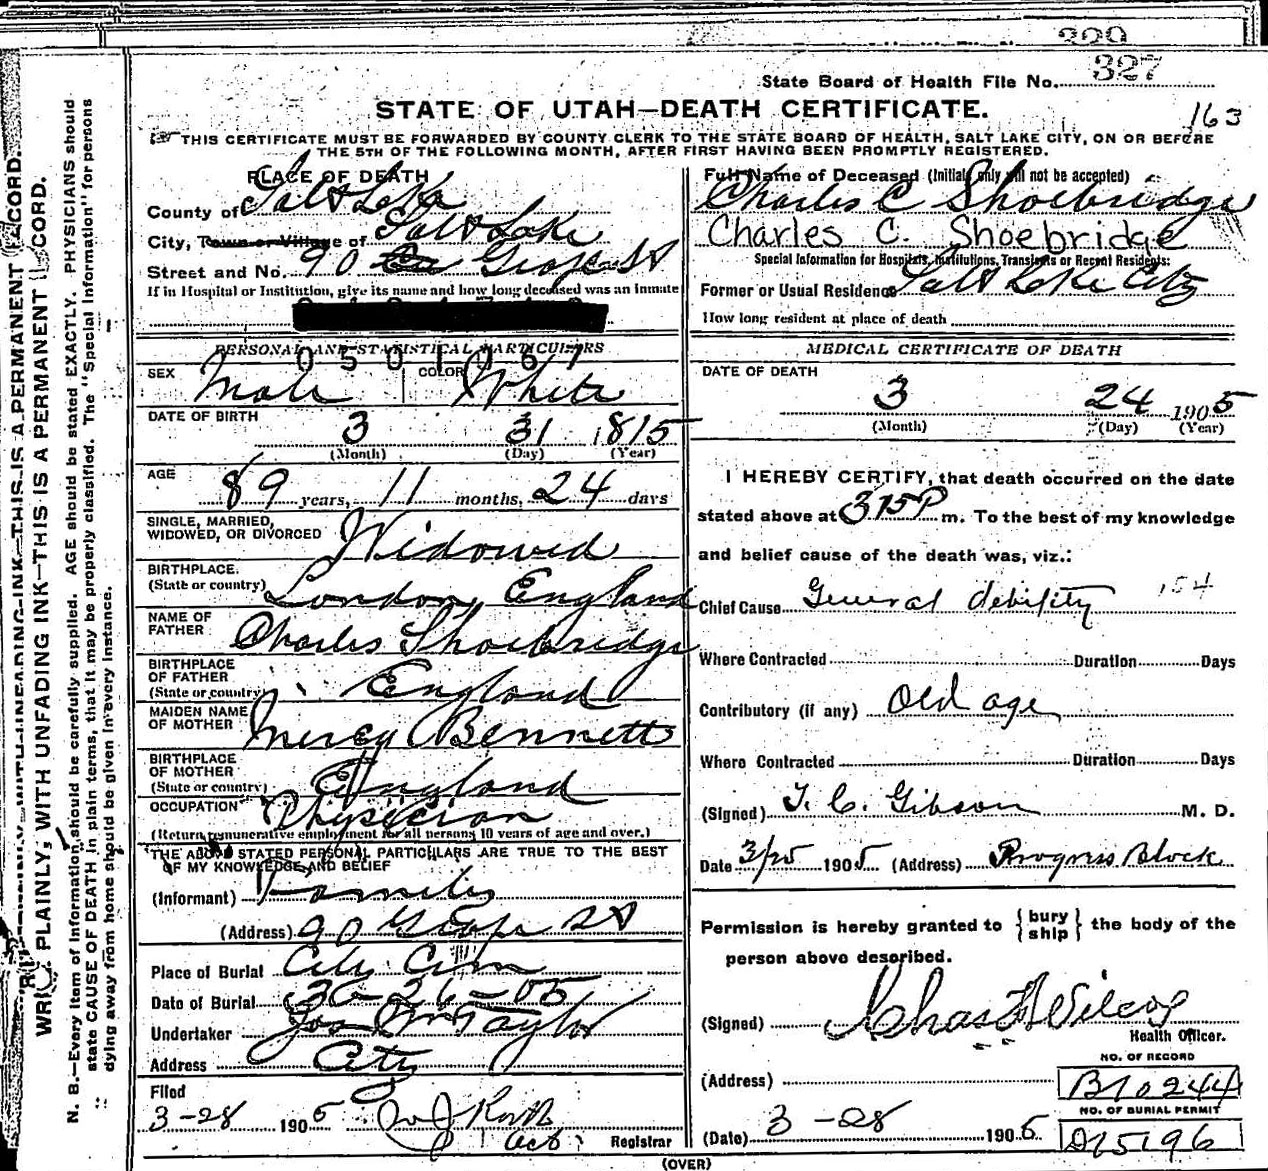 State Board of Health File No. 327
STATE OF UTAH—DEATH CERTIFICATE.
163
THIS CERTIFICATE MUST BE FORWARDED BY COUNTY CLERK TO THE STATE BOARD OF HEALTH, SALT LAKE CITY, ON OR BEFORE
THE 5TH OF THE FOLLOWING MONTH, AFTER FIRST HAVING BEEN PROMPTLY REGISTERED.
PLACE OF DEATH
County of Salt Lake
City, Town or Village of Salt Lake
Street and No. 90
If in Hospital or Institution, give its name and how long deceased was an inmate
PERSONAL AND STATISTICAL PARTICULARS
0501067
SEX Male COLOR White
DATE OF BIRTH
3 31 1815
(Month) (Day) (Year)
AGE
89 years, 11 months, 24 days
SINGLE, MARRIED,
WIDOWED, OR DIVORCED Widowed
BIRTHPLACE.
(State or country) London, England
NAME OF
FATHER Charles Shoebridge
BIRTHPLACE
OF FATHER
(State or country) England
MAIDEN NAME
OF MOTHER Mercy Bennett
BIRTHPLACE
OF MOTHER
(State or country) England
OCCUPATION Physician
(Return remunerative employment for all persons 10 years of age and over.)
THE ABOVE STATED PERSONAL PARTICULARS ARE TRUE TO THE BEST
OF MY KNOWLEDGE AND BELIEF
(Informant) Family
(Address) 90 St
Place of Burial City Cem
Date of Burial
Undertaker Jos Wm Taylor
Address City
Filed
3-28 1905
Registrar
Full Name of Deceased (Initials only will not be accepted)
Charles C Shoebridge
Charles C. Shoebridge
Special Information for Hospitals, Institutions, Transients or Recent Residents:
Former or Usual Residence Salt Lake City
How long resident at place of death
MEDICAL CERTIFICATE OF DEATH
DATE OF DEATH
3 24 1905
(Month) (Day) (Year)
I HEREBY CERTIFY, that death occurred on the date
stated above at 315 P m. To the best of my knowledge
and belief cause of the death was, viz.:
Chief Cause General debility 154
Where Contracted Duration Days
Contributory (if any) Old age
Where Contracted Duration Days
(Signed) T. C. Gibson M. D.
Date 3/25 1905 (Address) Progress Block
Permission is hereby granted to {bury ship} the body of the
person above described.
(Signed) Chas F Wilcox
Health Officer.
NO. OF RECORD
(Address) B10244
NO. OF BURIAL PERMIT
(Date) 3-28 1905 D15196
(OVER)
WRITE PLAINLY, WITH UNFADING INK—THIS IS A PERMANENT RECORD.
N. B.—Every item of information should be carefully supplied. AGE should be stated EXACTLY. PHYSICIANS should
state CAUSE OF DEATH in plain terms, that it may be properly classified. The "Special Information" for persons
dying away from home should be given in every instance.